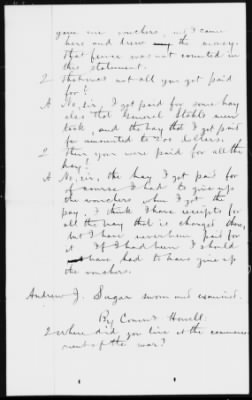 gave me vouchers, and I came
here and drew the money.
That fence was not counted in
this statement.
Q That was not all you got paid
for?
A No, sir, I got paid for some hay
also that General Stahl's men
took, and the hay that I got paid
for amounted to 200 dollars.
Q Then you were paid for all the
hay?
A No, sir, the hay I got paid for
of course I had to give up
the vouchers when I got the
pay. I think I have receipts for
all the hay that is charged there,
but I have never been paid for
it. If I had been I should
have had to have given up
the vouchers.
Andrew J. Sagar sworn and examined.
By Comr. Howell.
Q Where did you live at the commence
ment of the war?